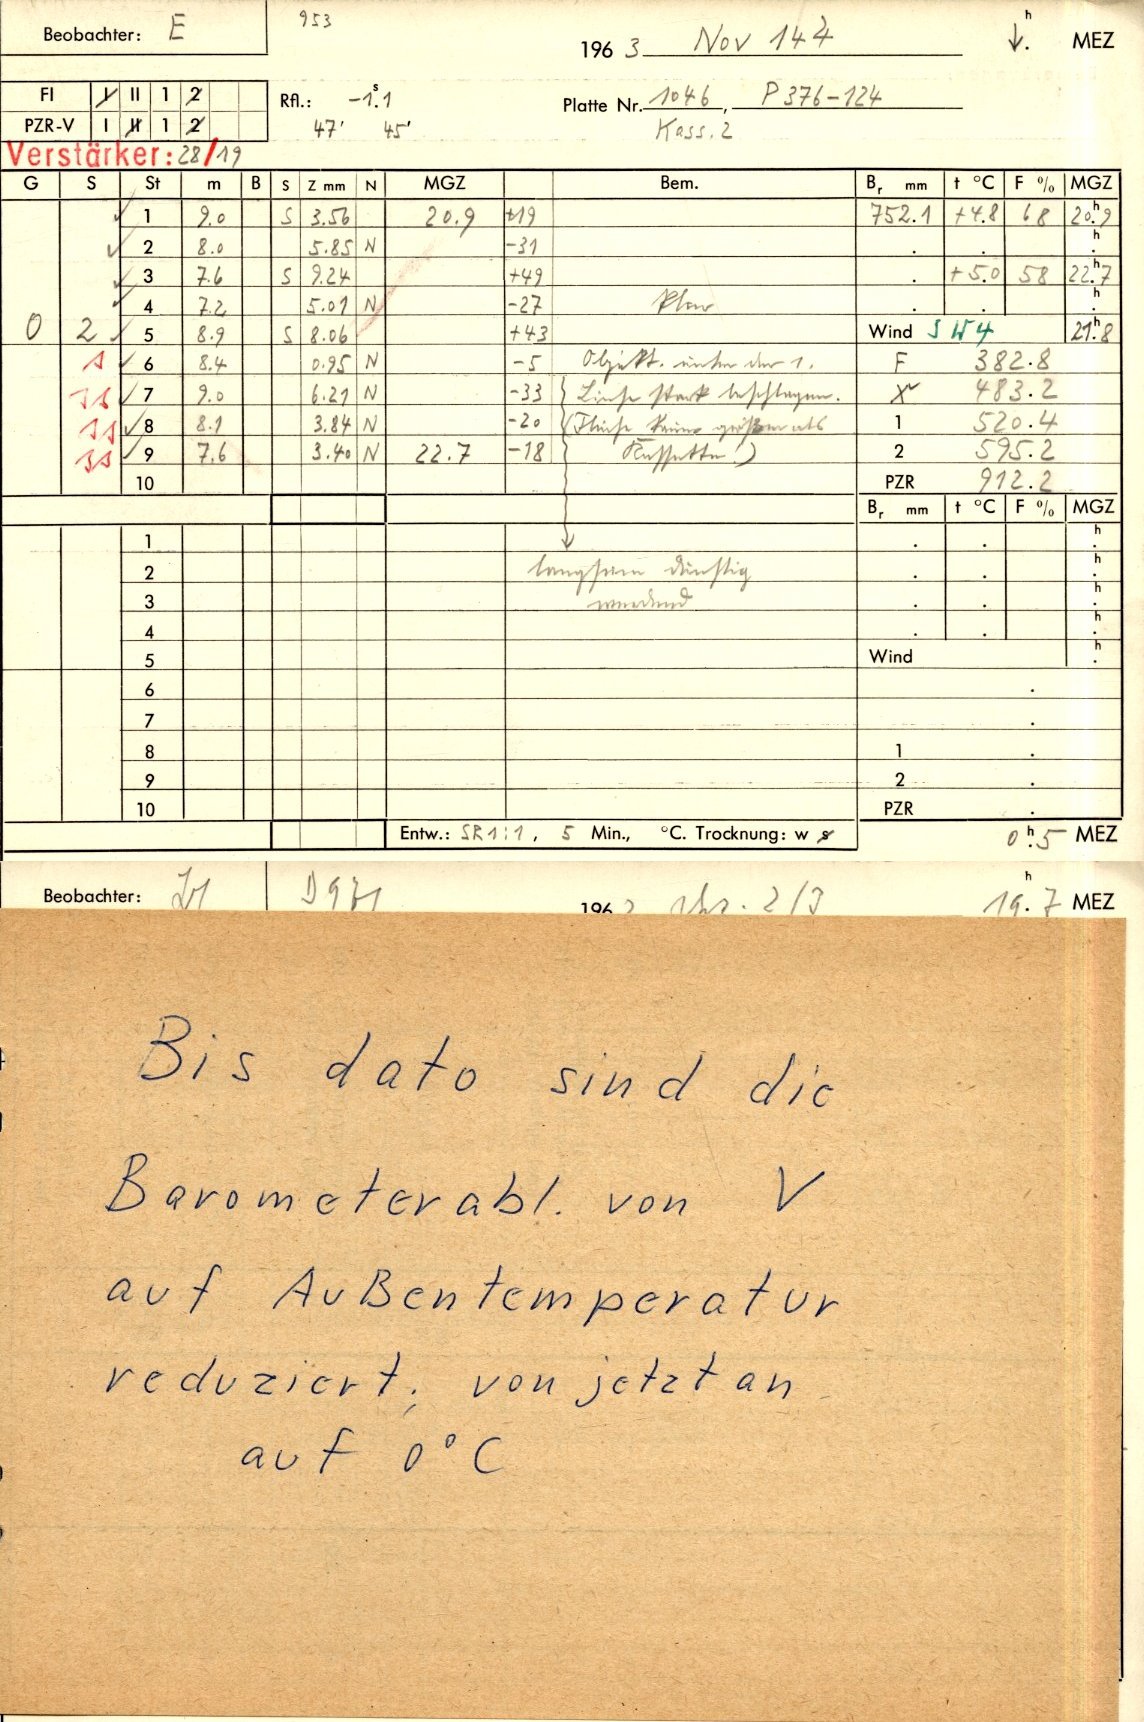 Beobachter: E 953 1963 Nov 14 ↓.h MEZ
FI I II 1 2 Rfl.: -1.s1 Platte Nr. 1046, P 376-124
PZR-V I II 1 2 47' 45' Kass. 2
Verstärker: 28/19
G S St m B S Z mm N MGZ Bem. Br mm t °C F % MGZ
1 9.0 S 3.56 20.9 +19 752.1 +4.8 68 20.h9
2 8.0 5.85 N -31 . . h.
3 7.6 S 9.24 +49 . +5.0 58 22.h7
4 7.2 5.01 N -27 klar . . h.
0 2 5 8.9 S 8.06 +43 Wind SW4 21.h8
1 6 8.4 0.95 N -5 Objekt. unter der 1. F 382.8
7 9.0 6.21 N -33 Linse stark beschlagen. X 483.2
8 8.1 3.84 N -20 kaum größer als 1 520.4
9 7.6 3.40 N 22.7 -18 Kassette!) 2 595.2
10 PZR 912.2
Br mm t °C F % MGZ
1 . . h.
2 langsam dunstig . . h.
3 werdend . . h.
4 . . h.
5 Wind h.
6 .
7 .
8 1 .
9 2 .
10 PZR .
Entw.: SR 1:1, 5 Min., °C. Trocknung: w s 0.h5 MEZ
Beobachter: 196 2/3 19.h7 MEZ
Bis dato sind die
Barometerabl. von V
auf Außentemperatur
reduziert; von jetzt an
auf 0°C